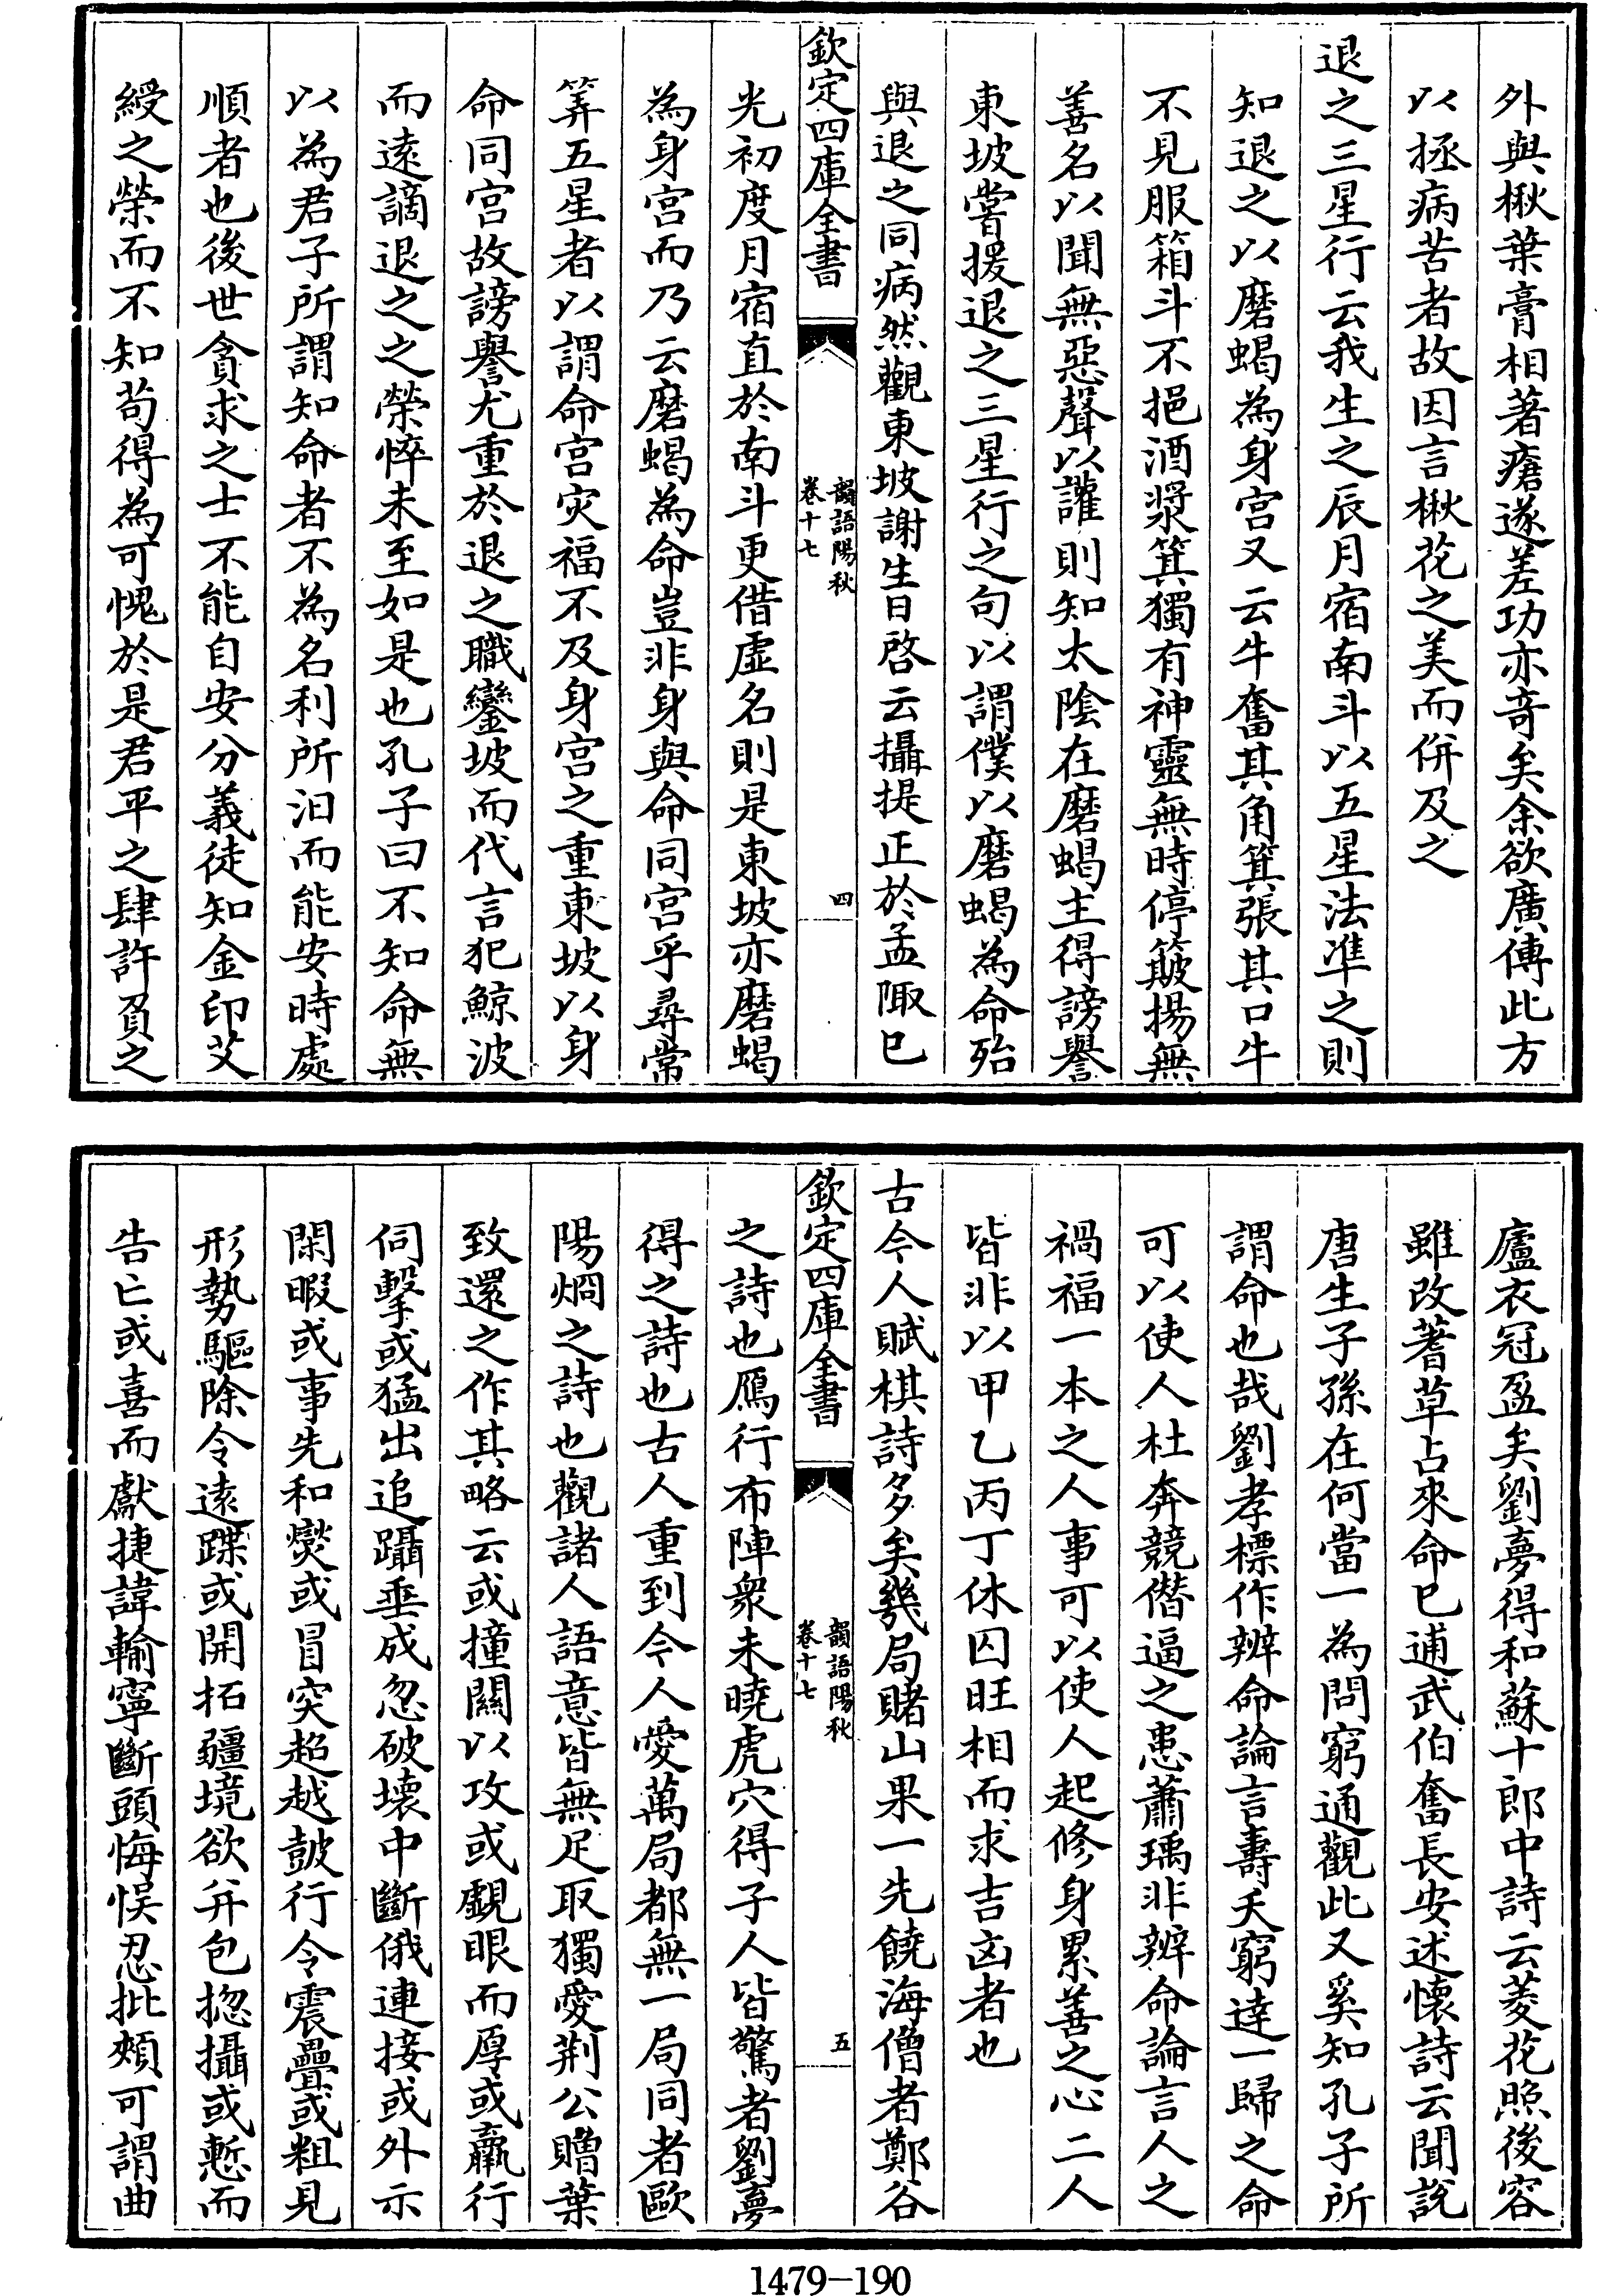 外與楸葉膏相著瘡遂差功亦奇矣余欲廣傳此方
以拯病苦者故因言楸花之美而併及之
退之三星行云我生之辰月宿南斗以五星法準之則
知退之以磨蝎為身宫又云牛奮其角箕張其口牛
不見服箱斗不挹酒漿箕獨有神靈無時停簸揚無
善名以聞無惡聲以讙則知太陰在磨蝎主得謗譽
東坡嘗援退之三星行之句以謂僕以磨蝎為命殆
與退之同病然觀東坡謝生日啓云攝提正於孟陬已
欽定四庫全書
韻語陽秋
卷十七
四
光初度月宿直於南斗更借虛名則是東坡亦磨蝎
為身宫而乃云磨蝎為命豈非身與命同宫乎尋常
筭五星者以謂命宫灾福不及身宫之重東坡以身
命同宫故謗譽尤重於退之職鑾坡而代言犯鯨波
而逺謫退之之榮悴未至如是也孔子曰不知命無
以為君子所謂知命者不為名利所汨而能安時處
順者也後世貪求之士不能自安分義徒知金印艾
綬之榮而不知苟得為可愧於是君平之肆許負之
廬衣冠盈矣劉夢得和蘇十郎中詩云菱花照後容
雖改蓍草占來命已通武伯奮長安述懷詩云聞説
唐生子孫在何當一為問窮通觀此又奚知孔子所
謂命也哉劉孝標作辨命論言壽夭窮達一歸之命
可以使人杜奔競僭逼之患蕭瑀非辨命論言人之
禍福一本之人事可以使人起修身累善之心二人
皆非以甲乙丙丁休囚旺相而求吉凶者也
古今人賦棋詩多矣幾局賭山果一先饒海僧者鄭谷
欽定四庫全書
韻語陽秋
卷十七
五
之詩也鴈行布陣衆未曉虎穴得子人皆驚者劉夢
得之詩也古人重到今人愛萬局都無一局同者歐
陽烱之詩也觀諸人語意皆無足取獨愛荆公贈葉
致還之作其略云或撞關以攻或覷眼而厚或羸行
伺擊或猛出追躡垂成忽破壞中斷俄連接或外示
閑暇或事先和燮或冒突超越鼓行令震疊或粗見
形勢驅除令逺蹀或開拓疆境欲并包揔攝或慙而
告亡或喜而獻捷諱輸寧斷頭悔悮忍批頰可謂曲
1479-190